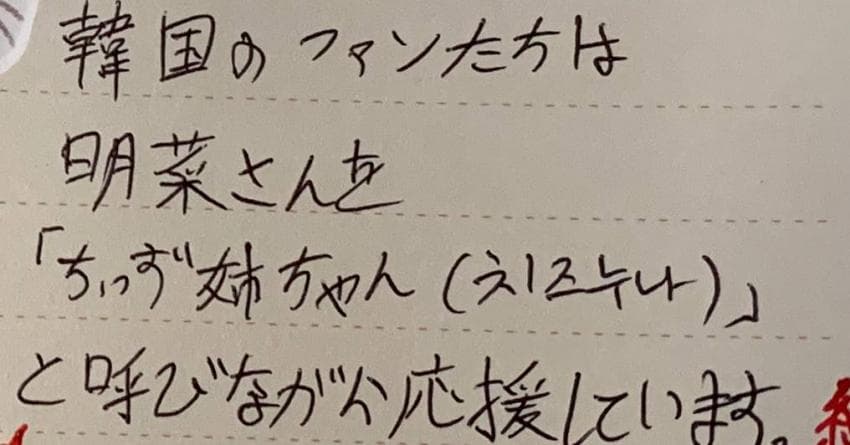 韓国のファンたちは
明菜さんを
「ちっず姉ちゃん(치즈누나)」
と呼びながら応援しています。